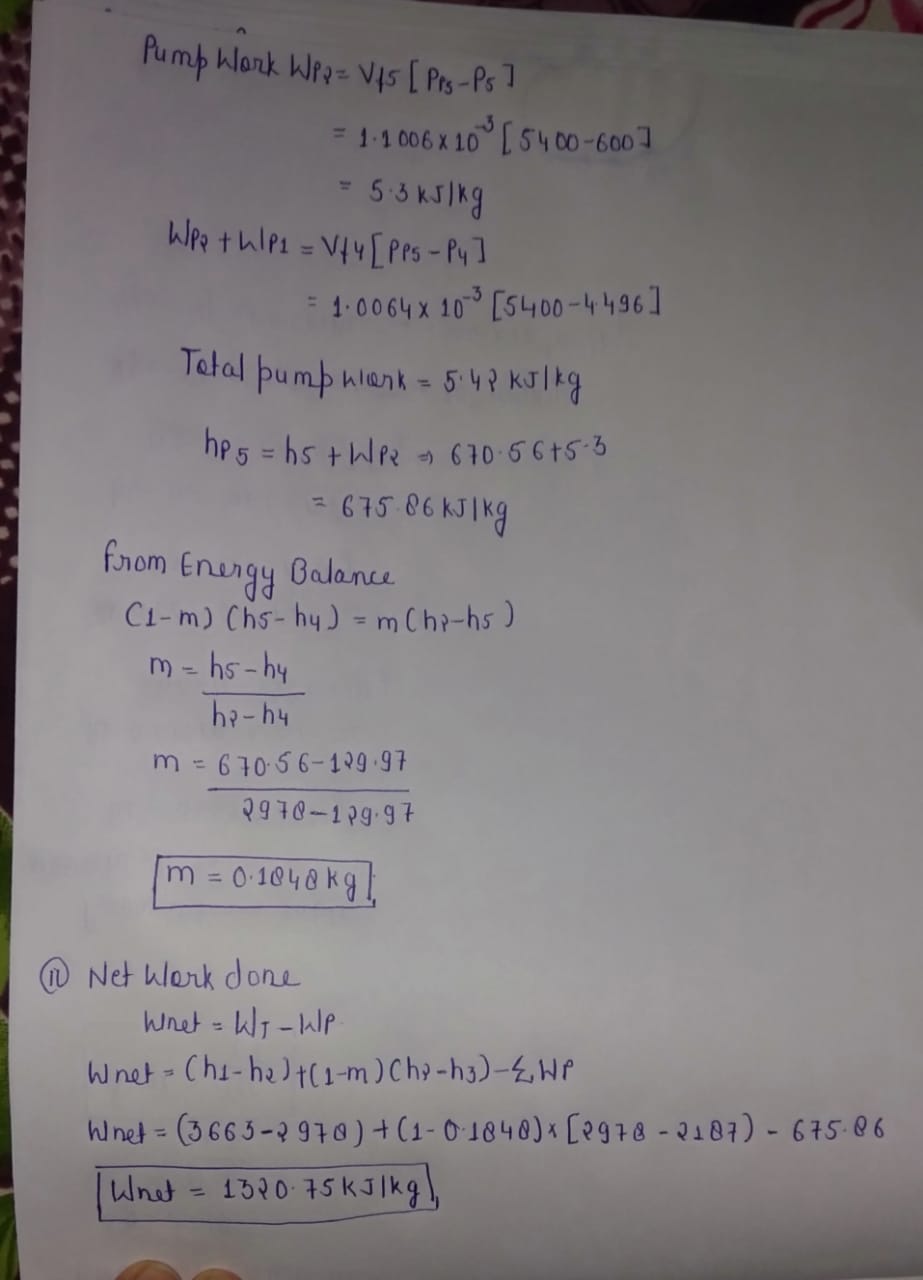 Pump Work WP2 = Vf5 [PP5 - P5]
= 1.1006 x 10^-3 [5400-600]
= 5.3 kJ/kg
WP2 + WP1 = Vf4 [PP5 - P4]
= 1.0064 x 10^-3 [5400-4.496]
Total pump work = 5.42 kJ/kg
hP5 = h5 + WP2 ⇒ 670.56+5.3
= 675.86 kJ/kg
from Energy Balance
(1-m) (h5-h4) = m(h2-h5)
m = h5-h4
h2-h4
m = 670.56-129.97
2978-129.97
m = 0.1848 kg
(ii) Net Work done
Wnet = WT - WP
Wnet = (h1-h2)+(1-m)(h2-h3)-Σ WP
Wnet = (3663-2978) + (1-0.1848)x [2978 - 2187) - 675.86
Wnet = 1320.75 kJ/kg